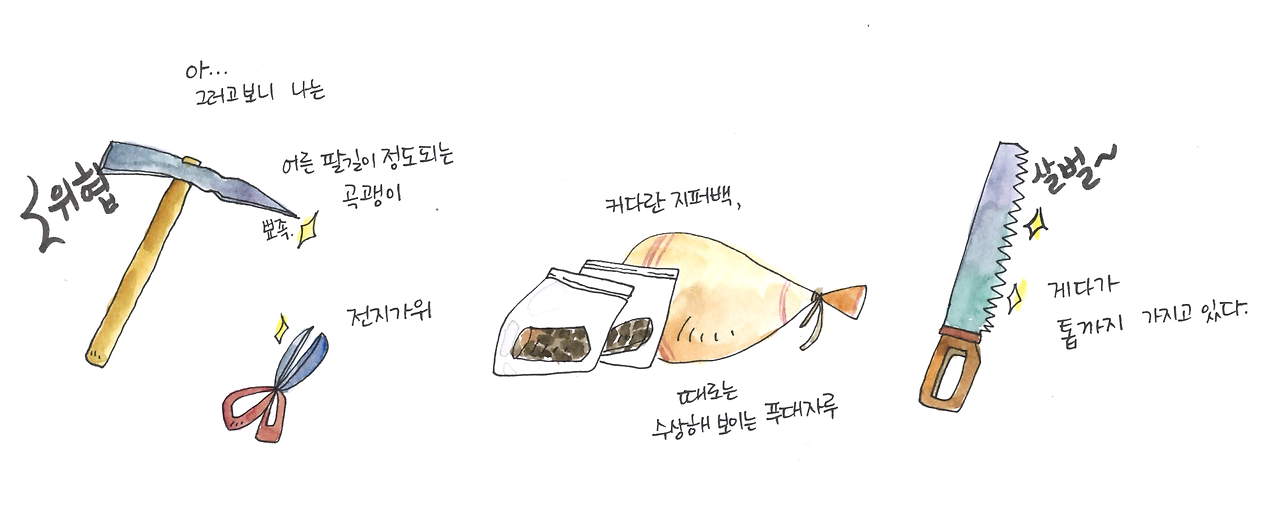 아...
그러고보니 나는
위협
어른 팔길이 정도되는
곡괭이
뾰족.
전지가위
커다란 지퍼백,
때로는
수상해 보이는 푸대자루
살벌~
게다가
톱까지 가지고 있다.